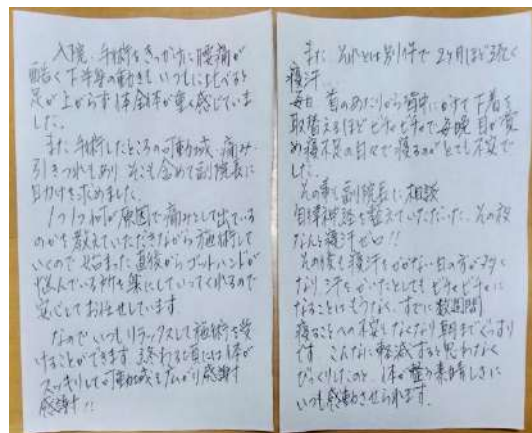 入院、手術をきっかけに腰痛が
酷く下半身の動きもいつもに比べると
足が上がらず体全体が重く感じていま
した。
また手術したところの可動域、痛み
引きつれもあり そこも含めて副院長に
助けを求めました。
1つ1つ何が原因で痛みとして出ている
のかを教えていただきながら施術して
いくので 始まった直後からゴットハンドが
悩んでいる所を楽にしていってくれるので
安心してお任せしています
なので いつもリラックスして施術を受
けることができます 終わる頃には体が
スッキリして可動域も広がり感謝
感謝!!
また それとは別件で 2ヶ月ほど続く
寝汗…
毎日 首のあたりから背中にかけて下着を
取替えるほどビチャビチャで毎晩 目が覚
め寝不足の日々で寝るのがとても不安で
した。
その事も副院長に相談
自律神経を整えていただいた、その夜
なんと寝汗ゼロ!!
その後も寝汗をかかない日の方が多く
なり 汗をかいたとしてもビチャビチャに
なることはもうなく、すでに数週間
寝ることへの不安もなくなり朝までぐっすり
です こんなに軽減すると思わなく
びっくりしたのと、体が整う素晴しさに
いつも感動させられます。